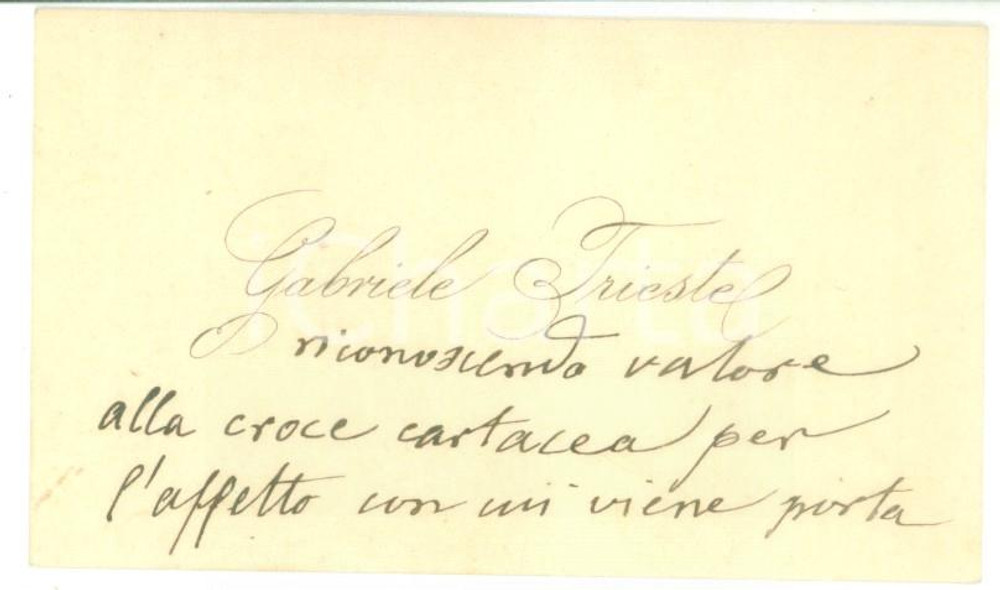 Gabriele Trieste
riconoscendo valore
alla croce cartacea per
l'affetto con cui viene porta